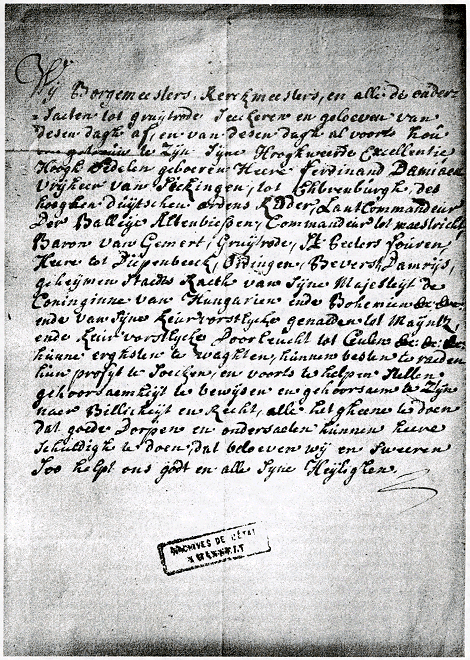 Wij Borgemeesters, Kerckmeesters, en alle die onder-
-saeten tot gruijtrode Seeckeren en geloeven van
desen dagh af, en van desen dagh al voorts hou
en getrouw te Zijn Sijne Hooghweerde Excellentie
Hoogh Edelen geboeren Heere Ferdinand Damiaen
vrijheer van Sickingen, tot Ebbrenburgh, des
hooghen duijtschen ordens Ridder, Lant Commandeur
Der Ballije Altenbiessen, Commandeur tot maestricht,
Baron van Gemert, Gruijtrode, St. Peeters fouren
Heere tot Diepenbeeck, Ordingen, Beverst, Damrijs,
geheijmen Staets Raeth van Sijne Majesteijt de
Coninginne van Hungarien ende Bohemien &c. &c.
ende van Sijne Keurvorstlycke genaden tot Maijntz,
ende Keurvorstlycke Doorluecht tot Ceulen &c. &c. &c.
hunne erghsten te waghten, hunnen besten te raeden
hun profijt te Soecken, en voorts te helpen Stellen
gehoorsaemheijt te bewijsen en gehoorsaem te Zijn
naer Billicheijt en Recht, alle hetgheene te doen
dat goide Dorpen en ondersaeten hunnen heere
Schuldigh te doen, dat beloeven wij en Sweeren
Soo helpt ons godt en alle Syne Heijlighen
ARCHIVES DE L'ÉTAT
HASSELT